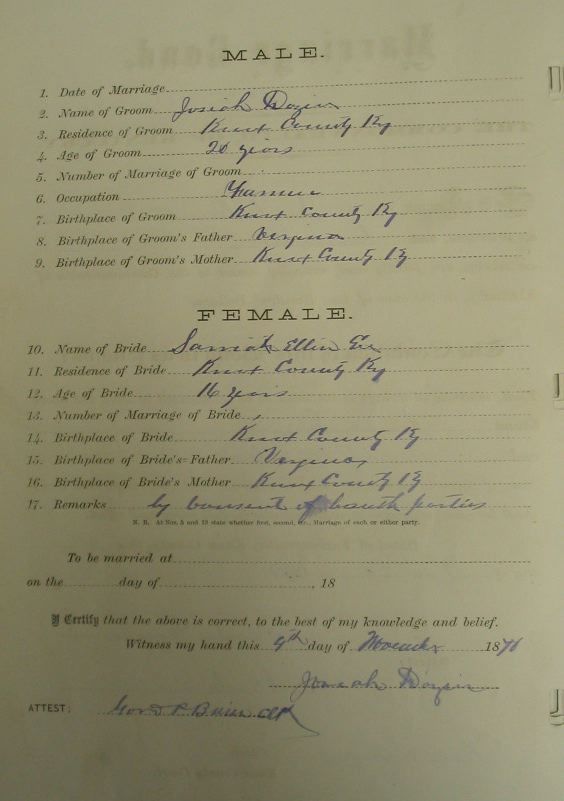 MALE.
1. Date of Marriage
2. Name of Groom Josiah Dozier
3. Residence of Groom Knox County Ky
4. Age of Groom 20 years
5. Number of Marriage of Groom
6. Occupation Farmer
7. Birthplace of Groom Knox County Ky
8. Birthplace of Groom's Father Verginia
9. Birthplace of Groom's Mother Knox County Ky
FEMALE.
10. Name of Bride Ellin
11. Residence of Bride Knox County Ky
12. Age of Bride 16 years
13. Number of Marriage of Bride
14. Birthplace of Bride Knox County Ky
15. Birthplace of Bride's Father Verginia
16. Birthplace of Bride's Mother Knox County Ky
17. Remarks by consent of bouth parties
N. B. At Nos. 5 and 13 state whether first, second, &c., Marriage of each or either party.
To be married at
on the day of , 18
I Certify that the above is correct, to the best of my knowledge and belief.
Witness my hand this 9th day of November 1876
Josiah Dozier
ATTEST: